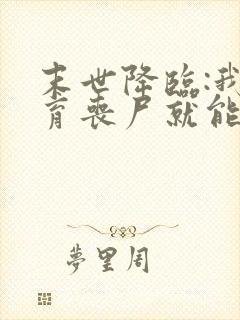 末世降臨:我
育喪尸就能
夢里周